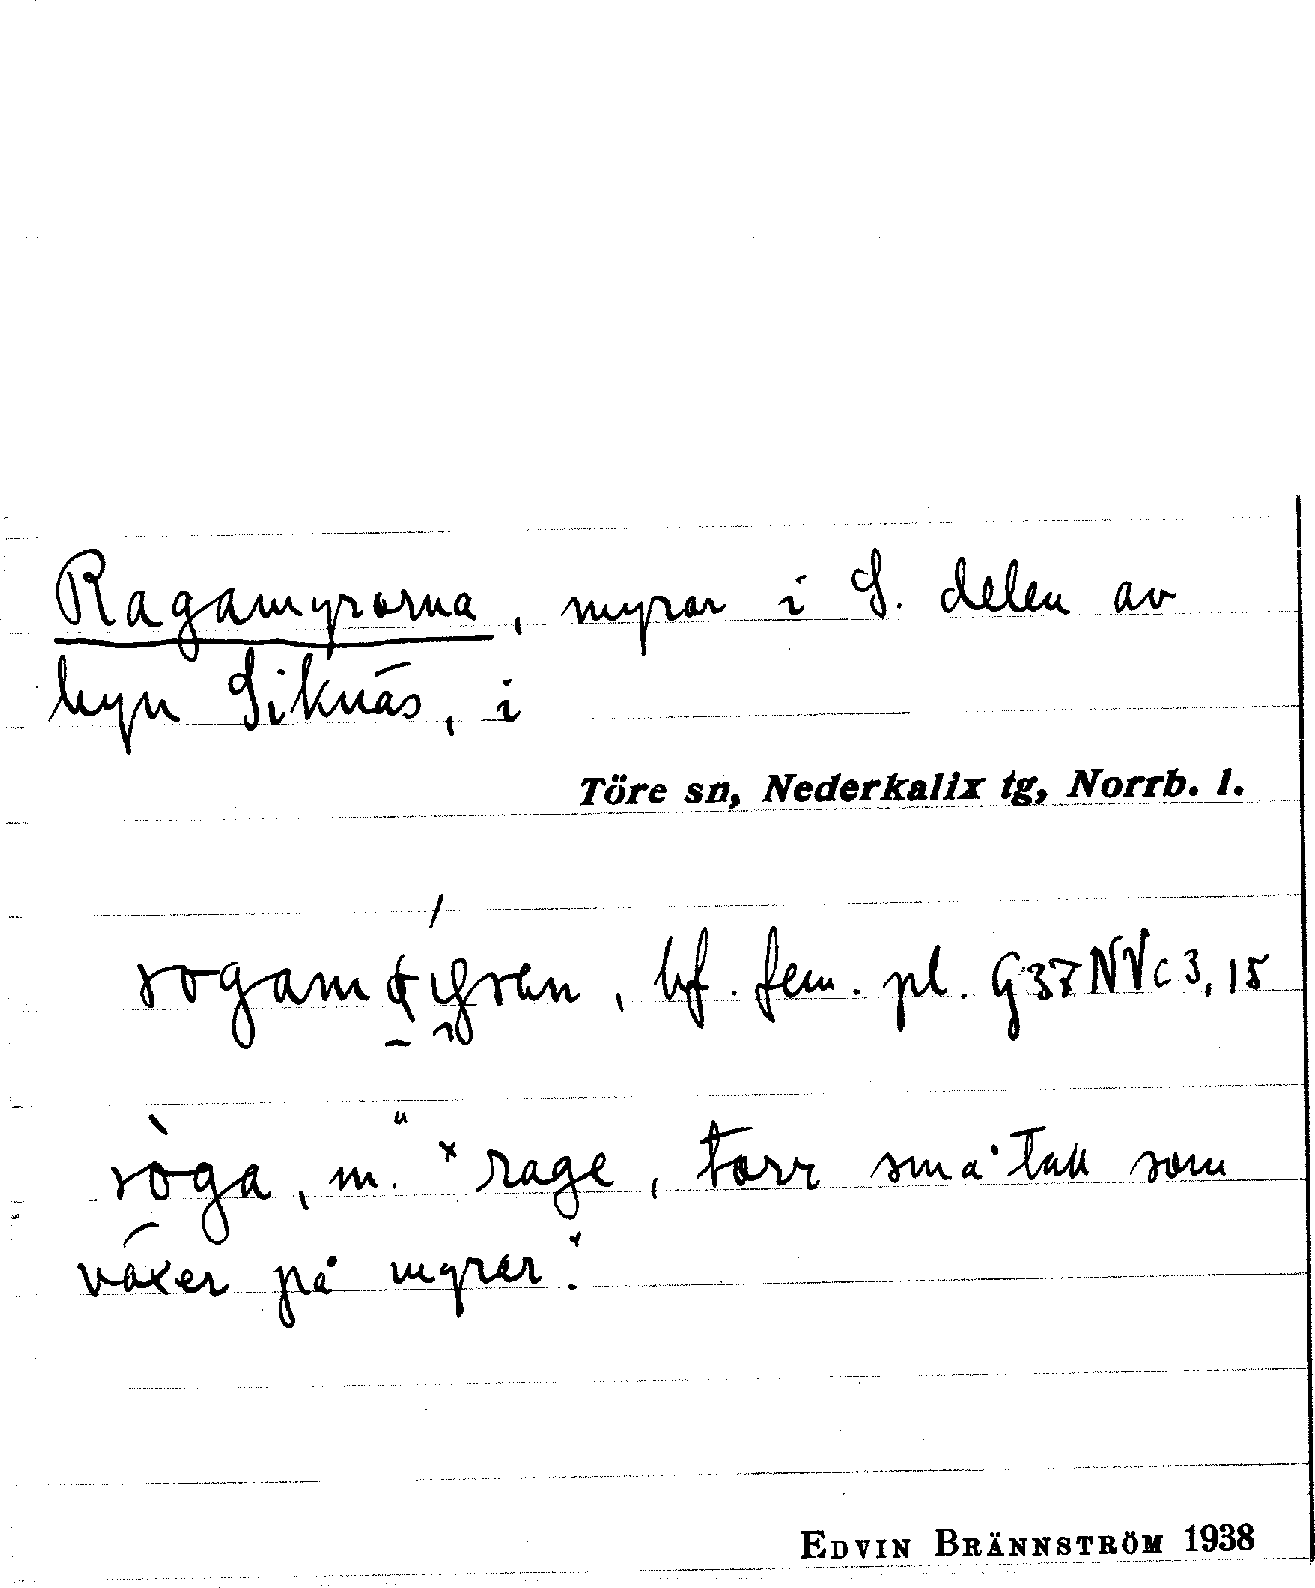 Ragamyrorna, myror i S. delen av
byn Siknäs, i
Töre sn, Nederkalix tg, Norrb. l.
bf. fem. pl. G37NVc3,15
ròga, m. "×rage, torr små tall som
växer på myrer."
EDVIN BRÄNNSTRÖM 1938